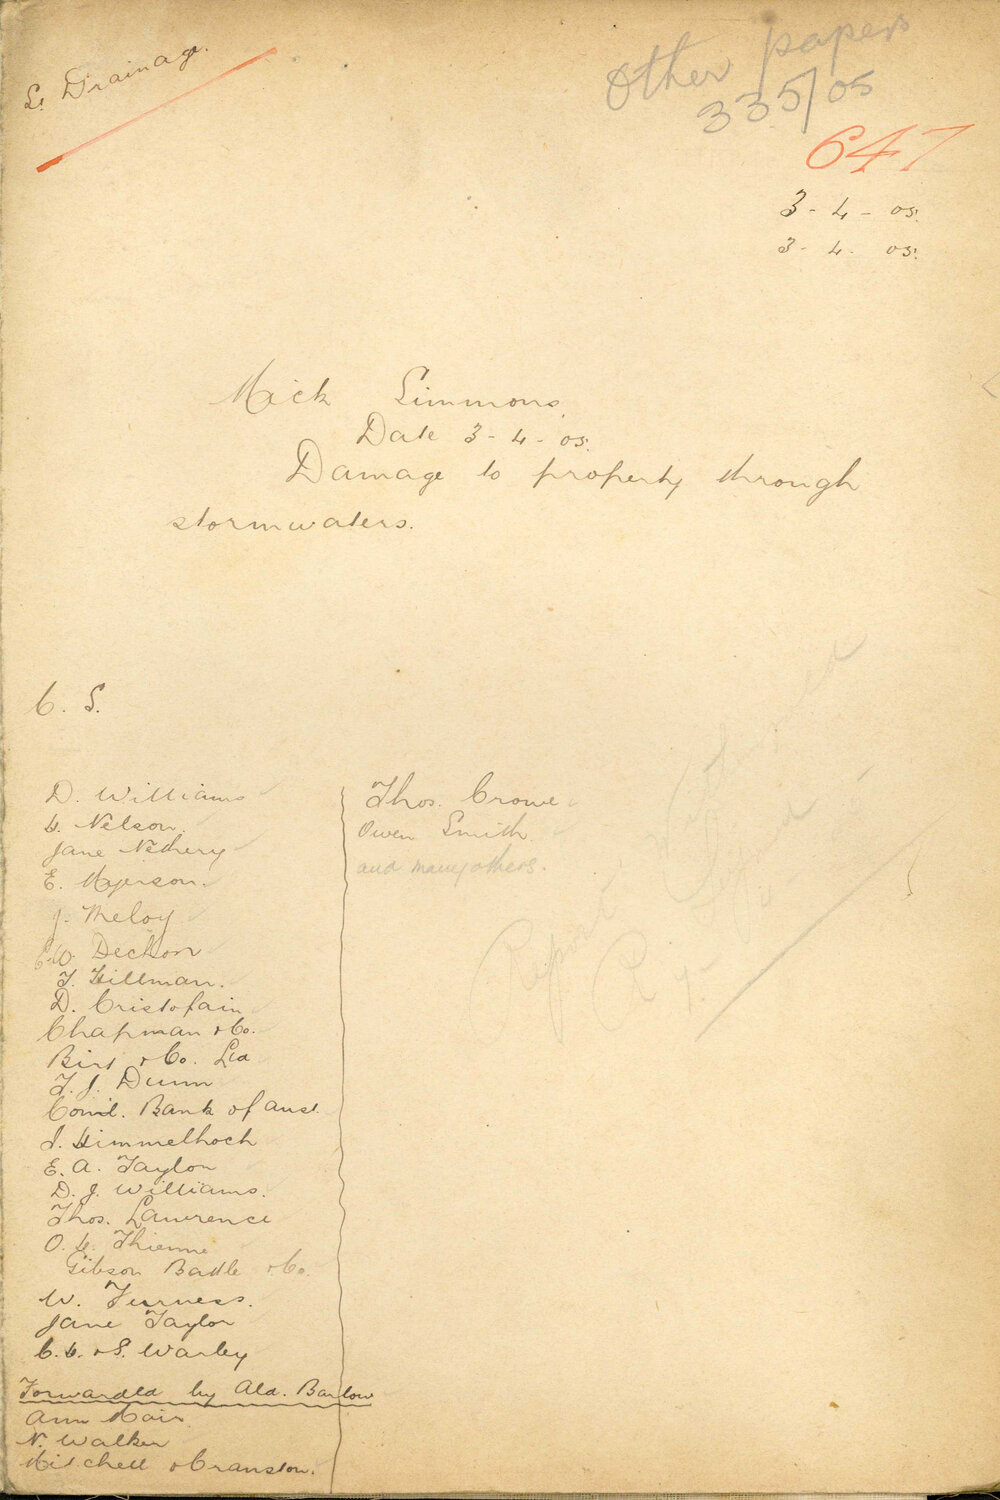 Drainage.
Other papers
335/05
647
3-4-05.
3-4-05.
Mick Simmons.
Date 3-4-05.
Damage to property through
stormwaters.
C. S.
D. Williams
H. Nelson.
Jane Nethery
E. Myerson.
J. Meloy
Dechon
T. Hillman.
D. Cristofain
Chapman & Co.
Birt & Co. Ltd
T. J. Dunn
Coml. Bank of Aust.
I. Himmelhoch
E. A. Taylor
D. J. Williams.
Thos. Lawrence
O. H. Thienne
Gibson Battle & Co.
W. Furness.
Jane Taylor
C. H. & S. Warley
Forwarded by Ald. Barlow
Ann Mair
N. Walker
Mitchell & Cranston.
Thos. Crowe
Owen Smith
and many others.
Report